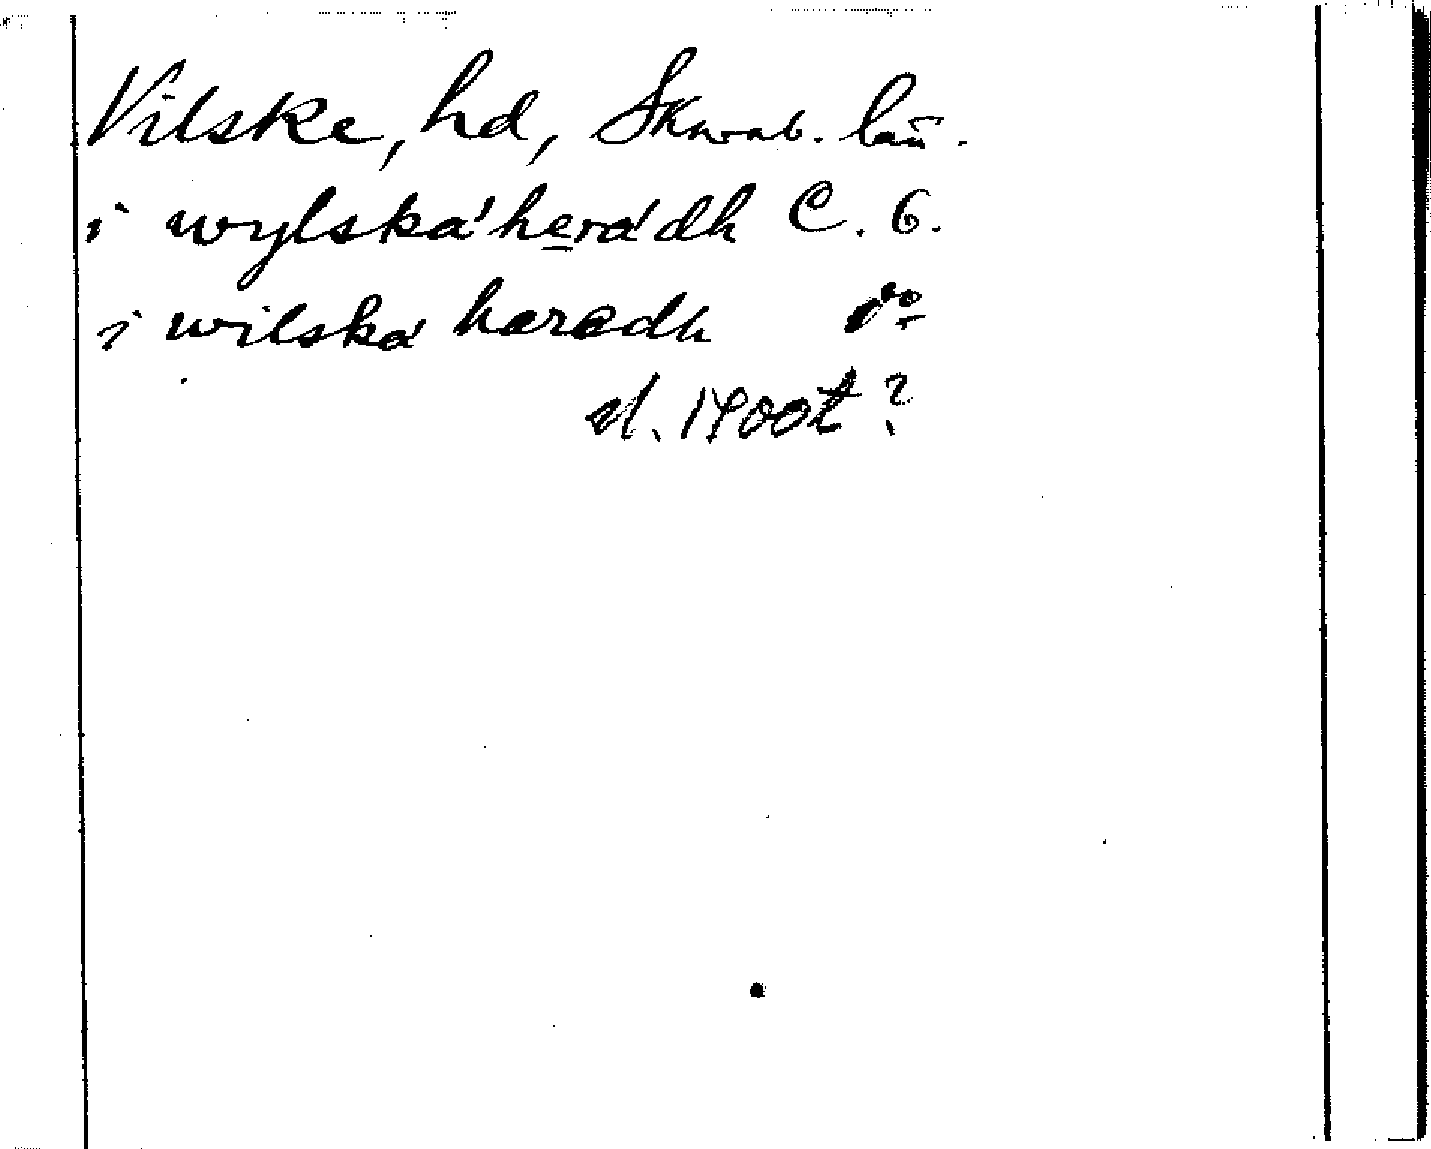 Vilske, hd, Skarab. län.
i wylska'hera'dh C. 6.
i wilska' haradh do
sl. 1400t?